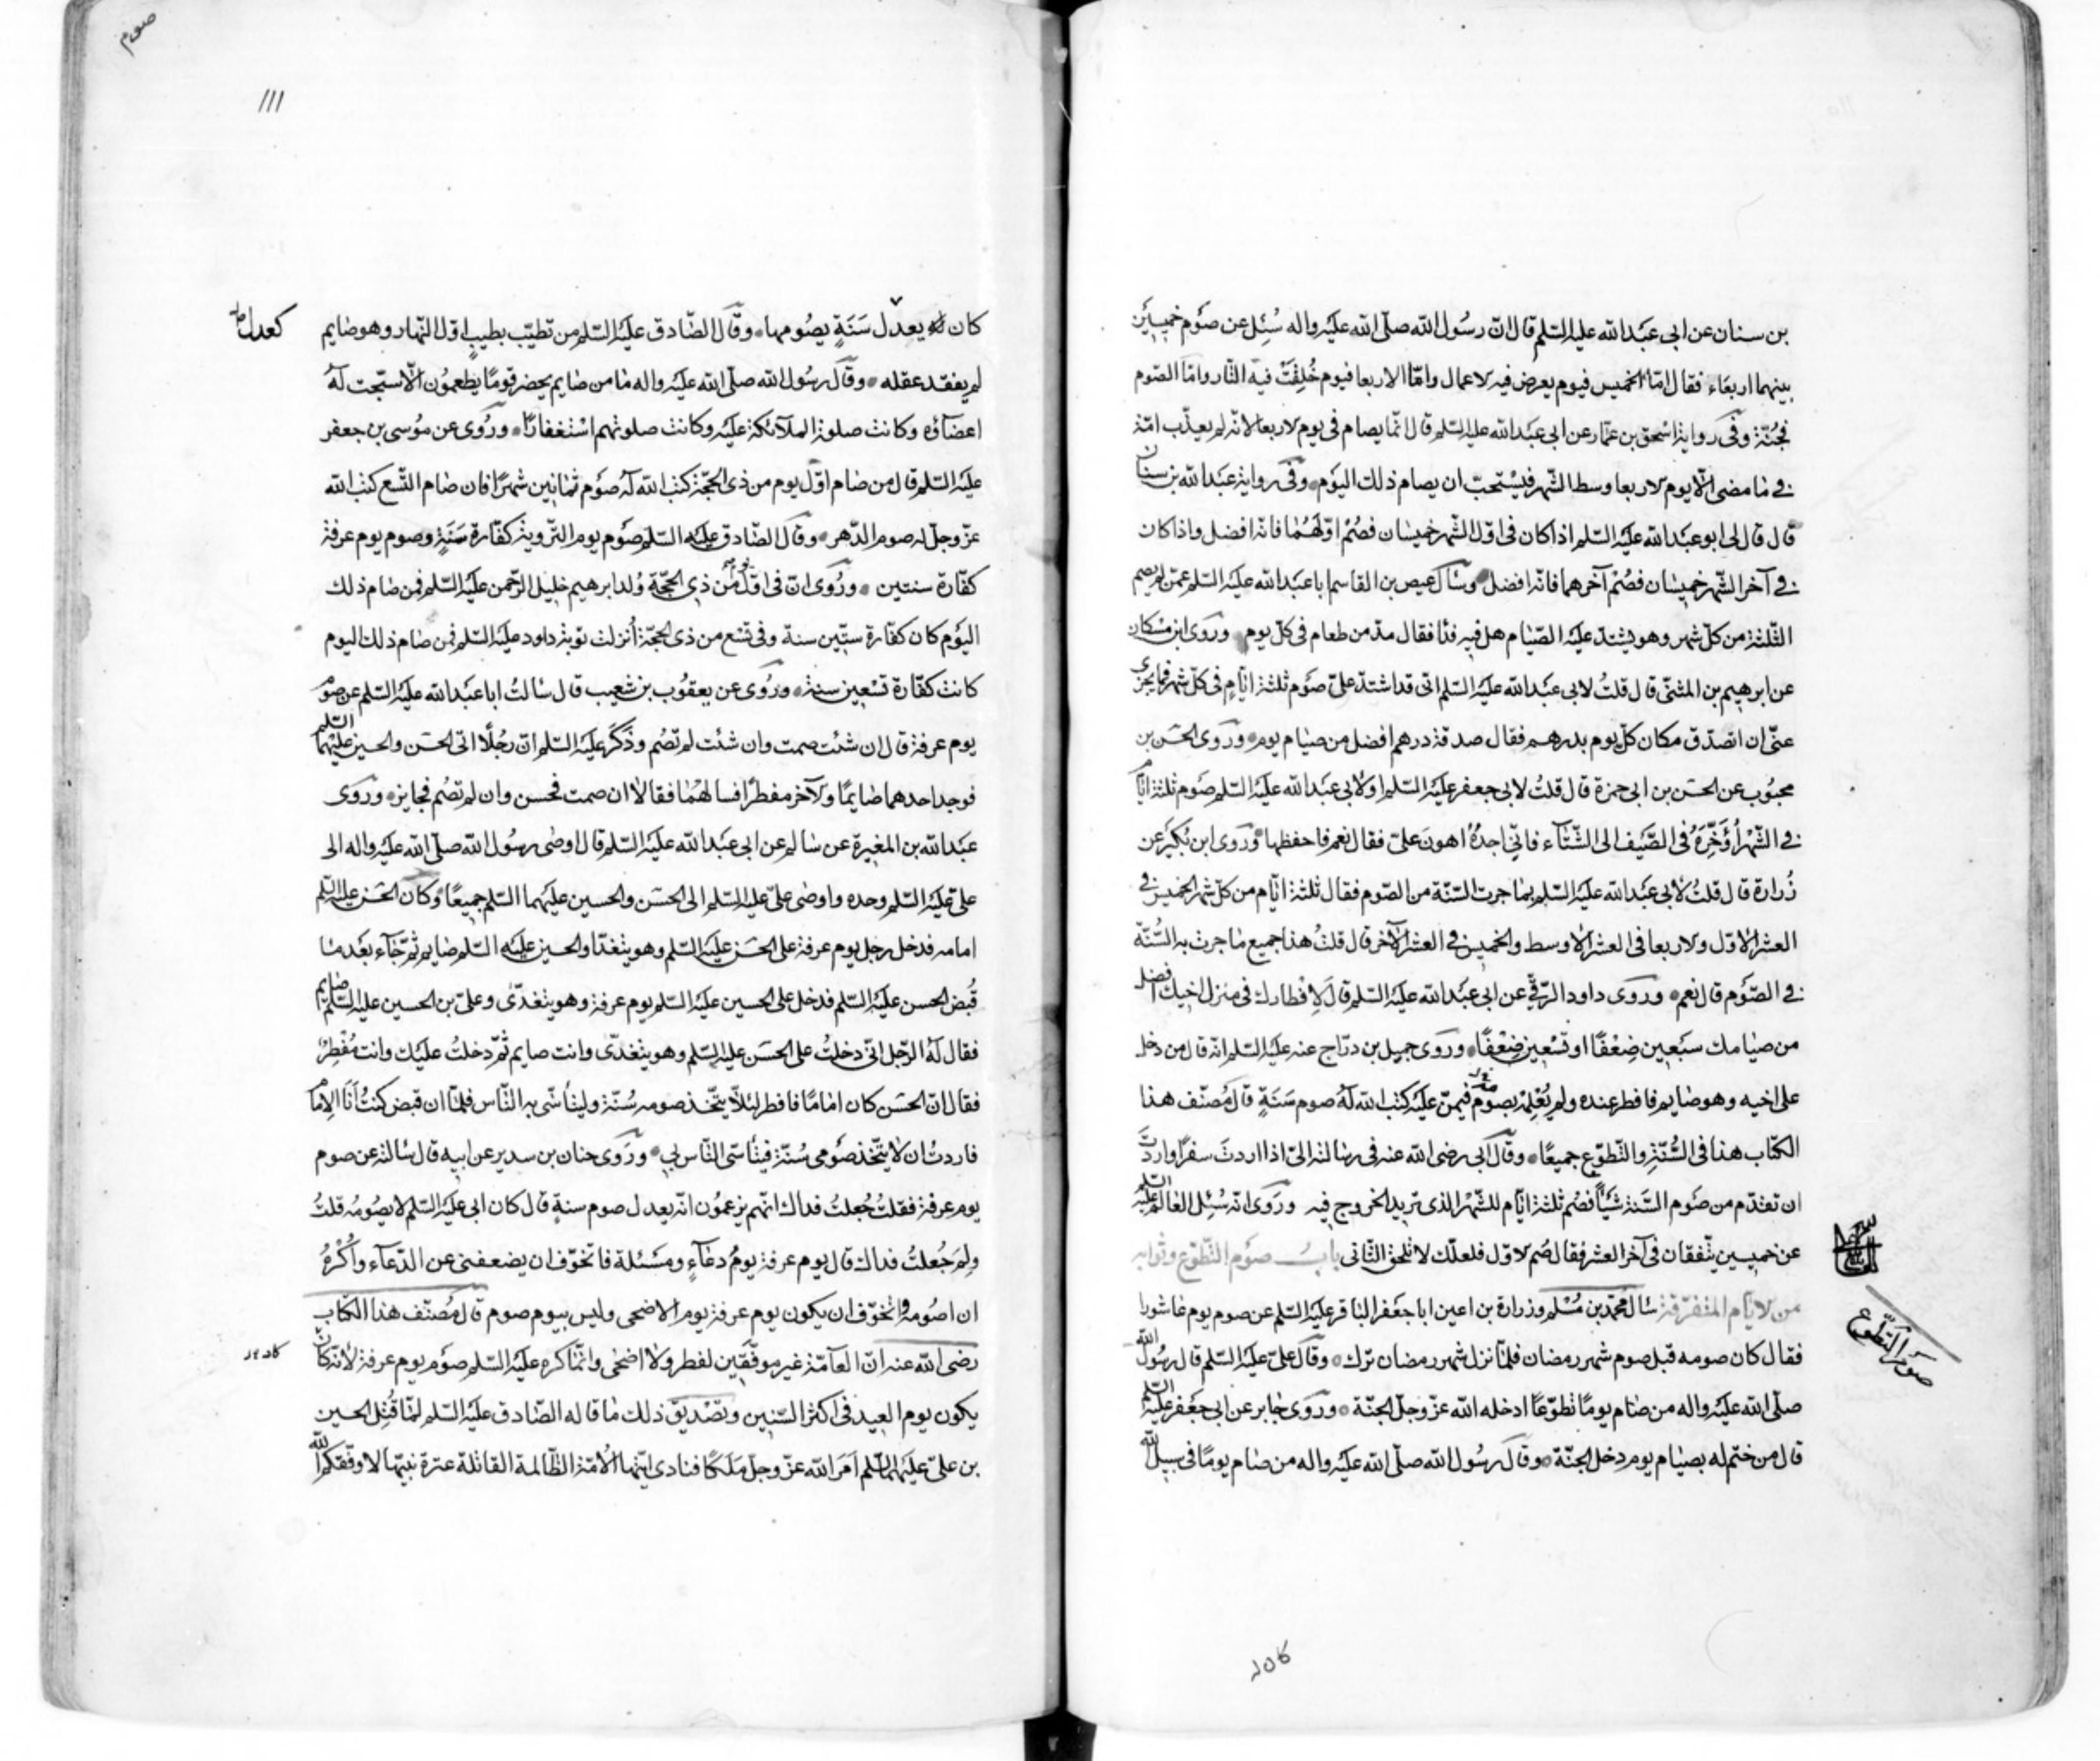 بن سنان عن ابي عبد الله عليه السلم قال ان رسول الله صلى الله عليه واله سئل عن صوم خميسين
بينهما اربعاء فقال اما الخميس فيوم يعرض فيه الاعمال واما الاربعا فيوم خلقت فيه النار واما الصوم
فجنة وفي رواية اسحق بن عمار عن ابي عبد الله عليه السلم قال انما يصام في يوم الاربعا لانه لم يعذب امة
في ما مضى الا يوم الاربعا وسط الشهر فيستحب ان يصام ذلك اليوم وفي رواية عبد الله بن سنان
قال قال لي ابو عبد الله عليه السلم اذا كان في اول الشهر خميسان فصم اولهما فانه افضل واذا كان
في آخر الشهر خميسان فصم آخرهما فانه افضل وسال عيص بن القاسم ابا عبد الله عليه السلم عمن لم يصم
الثلثة من كل شهر وهو يشتد عليه الصيام هل فيه فدا فقال مد من طعام في كل يوم وروى ابن مسكان
عن ابرهيم بن المثنى قال قلت لابي عبد الله عليه السلم اني قد اشتد علي صوم ثلثة ايام في كل شهر فما يجزي
عني ان اتصدق مكان كل يوم بدرهم فقال صدقة درهم افضل من صيام يوم وروى الحسن بن
محبوب عن الحسن بن ابي حمزة قال قلت لابي جعفر عليه السلم او لابي عبد الله عليه السلم صوم ثلثة ايام
في الشهر أؤخره في الصيف الى الشتاء فاني اجده اهون علي فقال نعم فاحفظها وروى ابن بكير عن
زرارة قال قلت لابي عبد الله عليه السلم بما جرت السنة من الصوم فقال ثلثة ايام من كل شهر الخميس في
العشر الاول والاربعا في العشر الاوسط والخميس في العشر الآخر قال قلت هذا جميع ما جرت به السنة
في الصوم قال نعم وروى داود الرقي عن ابي عبد الله عليه السلم قال لافطارك في منزل اخيك افضل
من صيامك سبعين ضعفا او تسعين ضعفا وروى جميل بن دراج عنه عليه السلم انه قال من دخل
على اخيه وهو صايم فافطر عنده ولم يعلمه بصومه فيمن عليه كتب الله له صوم سنة قال مصنف هذا
الكتاب هذا في السنة والتطوع جميعا وقال ابي رضي الله عنه في رسالته الي اذا اردت سفرا واردت
ان تقدم من صوم السنة شيئا فصم ثلثة ايام للشهر الذي تريد الخروج فيه وروى انه سئل العالم عليه السلم
عن خميسين يتفقان في آخر العشر فقال صم الاول فلعلك لا تلحق الثاني باب صوم التطوع وثوابه
من الايام المتفرقة سال محمد بن مسلم وزرارة بن اعين ابا جعفر الباقر عليه السلم عن صوم يوم عاشورا
صوم التطوع
فقال كان صومه قبل صوم شهر رمضان فلما نزل شهر رمضان ترك وقال علي عليه السلم قال رسول الله
صلى الله عليه واله من صام يوما تطوعا ادخله الله عز وجل الجنة وروى جابر عن ابي جعفر عليه السلم
قال من ختم له بصيام يوم دخل الجنة وقال رسول الله صلى الله عليه واله من صام يوما في سبيل الله
صوم
١١١
كان يعدل سنة يصومها وقال الصادق عليه السلم من تطيب بطيب اول النهار وهو صايم
كعدل
لم يفقد عقله وقال رسول الله صلى الله عليه واله ما من صايم يحضر قوما يطعمون الا سبحت له
اعضاؤه وكانت صلوة الملآئكة عليه وكانت صلوتهم استغفارا وروى عن موسى بن جعفر
عليه السلم قال من صام اول يوم من ذي الحجة كتب الله له صوم ثمانين شهرا فان صام التسع كتب الله
عز وجل له صوم الدهر وقال الصادق عليه السلم صوم يوم التروية كفارة سنة وصوم يوم عرفة
كفارة سنتين وروى ان في اول يوم من ذي الحجة ولد ابرهيم خليل الرحمن عليه السلم فمن صام ذلك
اليوم كان كفارة ستين سنة وفي تسع من ذي الحجة أنزلت توبة داود عليه السلم فمن صام ذلك اليوم
كانت كفارة تسعين سنة وروى عن يعقوب بن شعيب قال سالت ابا عبد الله عليه السلم عن صوم
يوم عرفة قال ان شئت صمت وان شئت لم تصم وذكر عليه السلم ان رجلا اتى الحسن والحسين عليهما السلم
فوجد احدهما صايما والآخر مفطرا فسالهما فقالا ان صمت فحسن وان لم تصم فجايز وروى
عبد الله بن المغيرة عن سالم عن ابي عبد الله عليه السلم قال اوصى رسول الله صلى الله عليه واله الى
علي عليه السلم وحده واوصى علي عليه السلم الى الحسن والحسين عليهما السلم جميعا وكان الحسن عليه السلم
امامه فدخل رجل يوم عرفة على الحسن عليه السلم وهو يتغدا والحسين عليه السلم صايم ثم جاء بعد ما
قبض الحسن عليه السلم فدخل على الحسين عليه السلم يوم عرفة وهو يتغدى وعلي بن الحسين عليه السلم صايم
فقال له الرجل اني دخلت على الحسن عليه السلم وهو يتغدى وانت صايم ثم دخلت عليك وانت مفطر
فقال ان الحسن كان اماما فافطر لئلا يتخذ صومه سنة وليتأسى به الناس فلما ان قبض كنت أنا الامام
فاردت ان لا يتخذ صومي سنة فيتأسى الناس بي وروى حنان بن سدير عن ابيه قال سالته عن صوم
يوم عرفة فقلت جعلت فداك انهم يزعمون انه يعدل صوم سنة قال كان ابي عليه السلم لا يصومه قلت
ولم جعلت فداك قال يوم عرفة يوم دعاء ومسئلة فاتخوف ان يضعفني عن الدعاء واكره
ان اصومه واتخوف ان يكون يوم عرفة يوم الاضحى وليس بيوم صوم قال مصنف هذا الكتاب
رضي الله عنه ان العامة غير موفقين لفطر ولا اضحى وانما كره عليه السلم صوم يوم عرفة لانه كان
يكون يوم العيد في اكثر السنين وتصديق ذلك ما قاله الصادق عليه السلم لما قتل الحسين
بن علي عليهما السلم امر الله عز وجل ملكا فنادى ايتها الامة الظالمة القاتلة عترة نبيها لا وفقكم الله